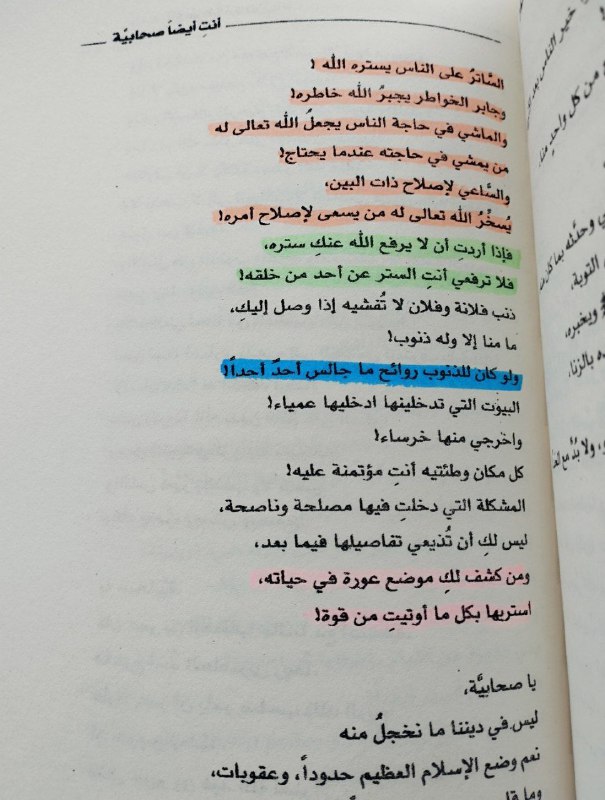 أنتِ أيضاً صحابيَّة
السَّاترُ على الناس يستره الله !
وجابر الخواطر يجبرُ الله خاطره!
والماشي في حاجة الناس يجعلُ الله تعالى له
من يمشي في حاجته عندما يحتاج!
والسَّاعي لإصلاح ذات البين،
يُسخِّرُ الله تعالى له من يسعى لإصلاح أمره!
فإذا أردتِ أن لا يرفع الله عنكِ ستره،
فلا ترفعي أنتِ الستر عن أحد من خلقه!
ذنب فلانة وفلان لا تُفشيه إذا وصل إليكِ،
ما منا إلا وله ذنوب!
ولو كان للذنوب روائح ما جالس أحدٌ أحداً!
البيوت التي تدخلينها ادخليها عمياء!
واخرجي منها خرساء!
كل مكان وطئتيه أنتِ مؤتمنة عليه!
المشكلة التي دخلتِ فيها مصلحة وناصحة،
ليس لكِ أن تُذيعي تفاصيلها فيما بعد،
ومن كشف لكِ موضع عورة في حياته،
استريها بكل ما أوتيتِ من قوة!
يا صحابيَّة،
ليس في ديننا ما نخجلُ منه
نعم وضع الإسلام العظيم حدوداً، وعقوبات،
خير الناس
من كل واحدٍ منا
وحدَّثه بما كان
التوبة،
ويخبره
بالزنا،
ولا بُدَّ مع